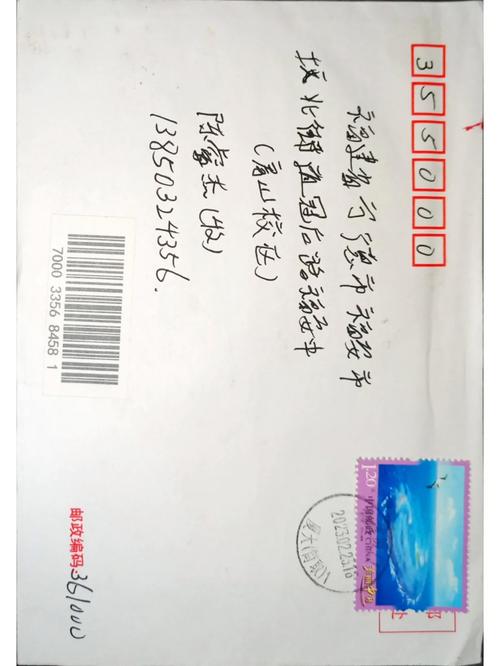 355000
福建省宁德市福安市
北街道冠后路福安中
山校区)
陈睿杰(收)
13850324356.
7000 3356 8458 1
1.20
中国邮政 CHINA
2023.02.23.16
邮政编码 361000